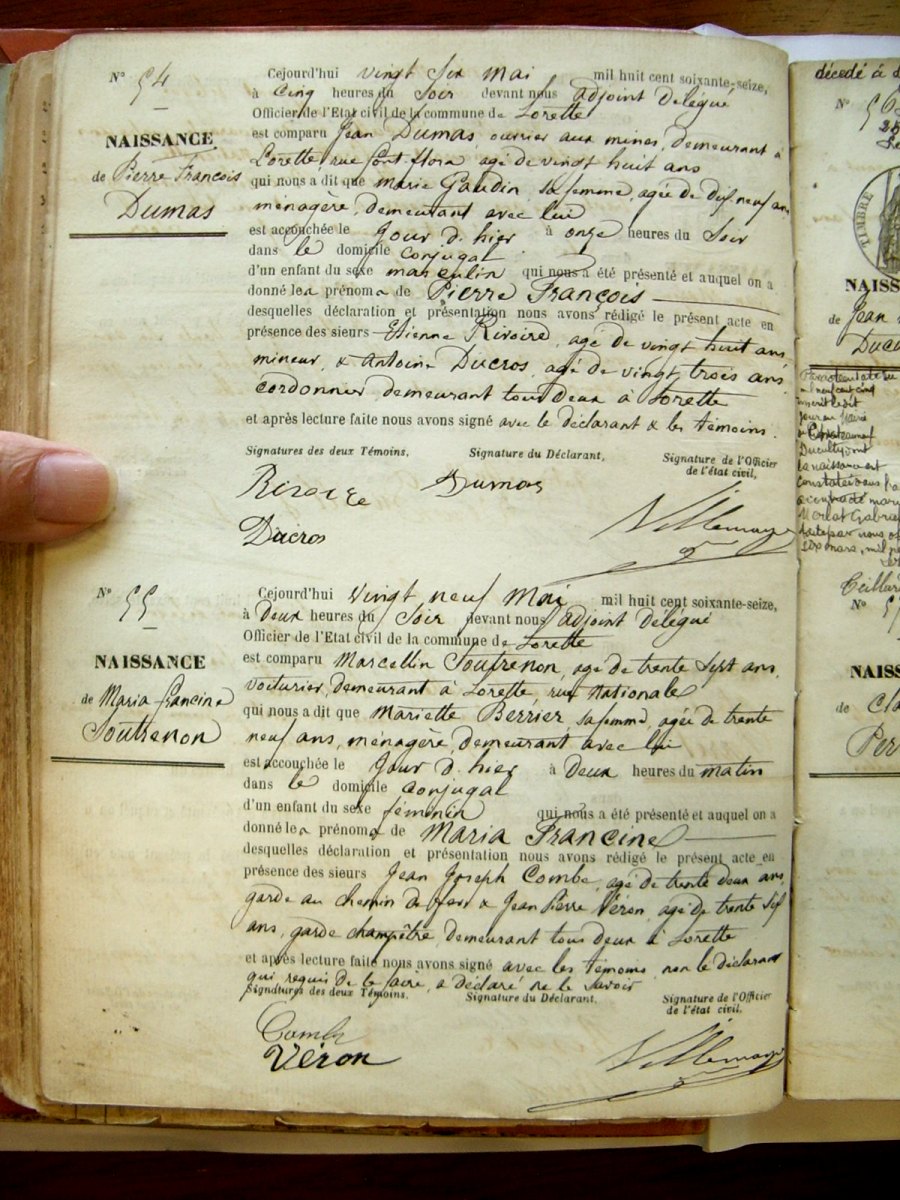 N° 54
NAISSANCE
de Pierre François
Dumas
Cejourd'hui vingt six mai mil huit cent soixante-seize,
à cinq heures du soir devant nous adjoint délégué
Officier de l'Etat civil de la commune de Lorette
est comparu Jean Dumas, ouvrier aux mines, demeurant à
Lorette, rue Pont flora, agé de vingt huit ans
qui nous a dit que Marie Gaudin sa femme, agée de dix neuf ans
ménagère, demeurant avec lui
est accouchée le jour d'hier à onze heures du soir
dans le domicile conjugal
d'un enfant du sexe masculin qui nous a été présenté et auquel on a
donné les prénoms de Pierre François
desquelles déclaration et présentation nous avons rédigé le présent acte en
présence des sieurs Etienne Rivoire, agé de vingt huit ans
mineur, & Antoine Ducros, agé de vingt trois ans
cordonnier, demeurant tous deux à Lorette
et après lecture faite nous avons signé avec le déclarant & les témoins.
Signatures des deux Témoins, Signature du Déclarant, Signature de l'Officier
de l'état civil,
Rivoire Dumas
Ducros
N° 55
NAISSANCE
de Maria Francine
Soutrenon
Cejourd'hui vingt neuf Mai mil huit cent soixante-seize,
à Deux heures du soir devant nous adjoint délégué
Officier de l'Etat civil de la commune de Lorette
est comparu Marcellin Soutrenon, agé de trente sept ans,
voiturier, demeurant à Lorette rue Nationale
qui nous a dit que Mariette Berrier sa femme, agée de trente
neuf ans, ménagère, demeurant avec lui
est accouchée le jour d'hier à Deux heures du matin
dans le domicile conjugal
d'un enfant du sexe féminin qui nous a été présenté et auquel on a
donné les prénoms de Maria Francine
desquelles déclaration et présentation nous avons rédigé le présent acte en
présence des sieurs Jean Joseph Combe, agé de trente deux ans,
garde au chemin de fer & Jean Pierre Véron, agé de trente sept
ans, garde champêtre, demeurant tous deux à Lorette
et après lecture faite nous avons signé avec les témoins, non le déclarant
qui requis de le faire, a déclaré ne le savoir
Signatures des deux Témoins, Signature du Déclarant, Signature de l'Officier
de l'état civil,
Combe
Véron
décédé à
N° 56
TIMBRE
NAISS
de Jean
Ducu
mil neuf cent cinq
la naissance est
N°
NAISS
de Cla
Per